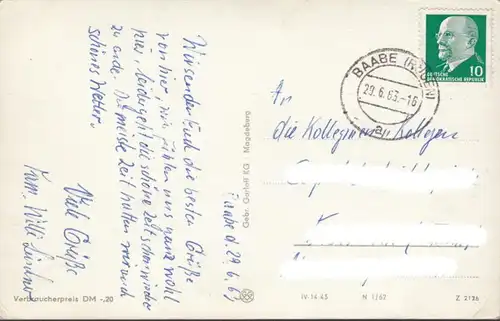 Baabe d. 29.6.63
Wir senden Euch die besten Grüße
von hier, wir fühlen uns ganz wohl
hier, leider geht die schöne Zeit schon wieder
zu ende. Die meiste Zeit hatten wir auch
schönes Wetter.
Viele Grüße
Fam. Willi
Verbraucherpreis DM -,20
Gebr. Garloff KG Magdeburg
BAABE (RÜGEN)
29.6.63.-16
a
DEUTSCHE
DEMOKRATISCHE REPUBLIK
10
An
die Kolleginnen u. Kollegen
IV-14-45 N 1/62 Z 2126